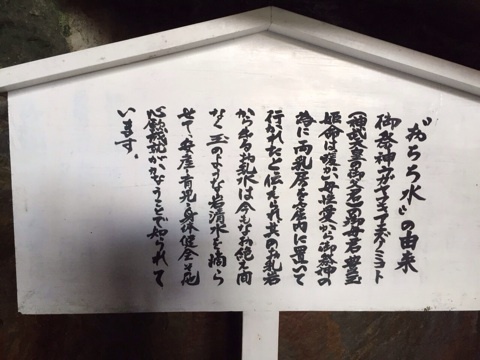 "おちち水"の由来
御祭神ウガヤフキアエズノミコト
(神武天皇の御父君)の御母君 豊玉
姫命は暖かい母性愛から御祭神の
為に両乳房を屋内に置いて
行かれたと伝えられ其のお乳岩
から出るお乳水は今もなお絶え間
なく玉のような岩清水を滴ら
せて、安産・育児・身体健全其他
心願成就がかなうことで知られて
います。